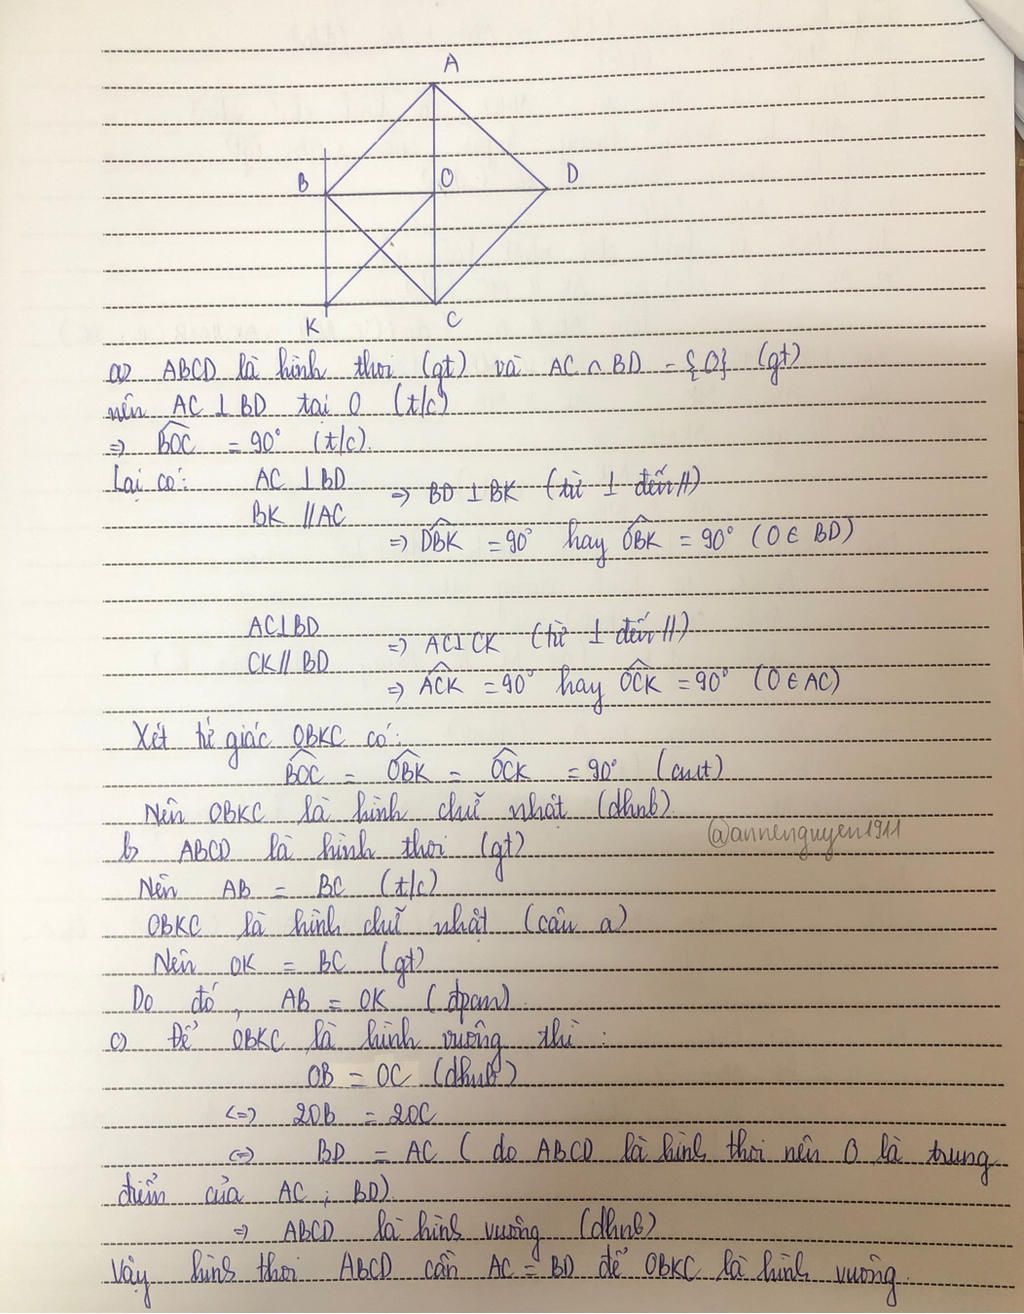 A
B
O
D
K
C
a) ABCD là hình thoi (gt) và AC ∩ BD = {O} (gt)
nên AC ⊥ BD tại O (t/c)
=> B̂OC = 90° (t/c).
Lại có: AC ⊥ BD
BK // AC
=> BD ⊥ BK (từ ⊥ đến //)
=> D̂BK = 90° hay ÔBK = 90° (O ∈ BD)
AC ⊥ BD
CK // BD
=> AC ⊥ CK (từ ⊥ đến //)
=> ÂCK = 90° hay ÔCK = 90° (O ∈ AC)
Xét tứ giác OBKC có:
B̂OC = ÔBK = ÔCK = 90° (cmt)
Nên OBKC là hình chữ nhật (dhnb).
@annenguyen1911
b) ABCD là hình thoi (gt)
Nên AB = BC (t/c)
OBKC là hình chữ nhật (câu a)
Nên OK = BC (gt)
Do đó, AB = OK (đpcm).
c) Để OBKC là hình vuông thì:
OB = OC (dhnb)
<=> 2OB = 2OC
<=> BD = AC (do ABCD là hình thoi nên O là trung
điểm của AC; BD)
=> ABCD là hình vuông (dhnb)
Vậy hình thoi ABCD cần AC = BD để OBKC là hình vuông.